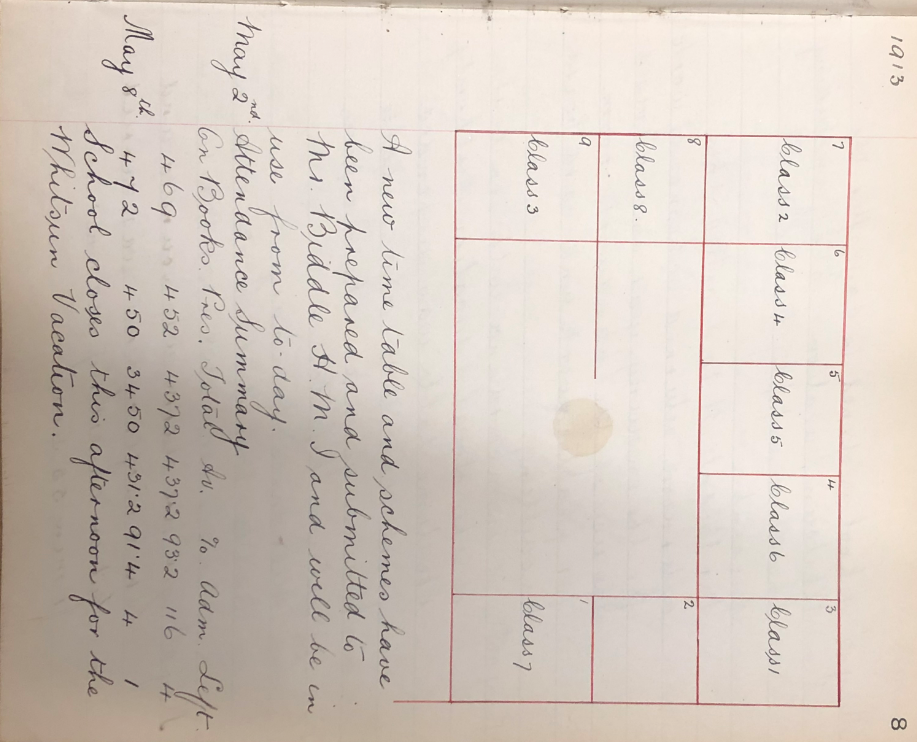 1913 8
7 6 5 4 3
Class 2 Class 4 Class 5 Class 6 Class 1
8 2
Class 8.
9 1
Class 3 Class 7
A new time table and schemes have
been prepared and submitted to
Mr. Biddle H.M.I and will be in
use from to-day.
May 2nd. Attendance Summary
On Books. Pres. Total Av. % Adm. Left.
469 452 4372 437.2 93.2 116 4
May 8th. 472 450 3450 431.2 91.4 4 1
School closes this afternoon for the
Whitsun Vacation.